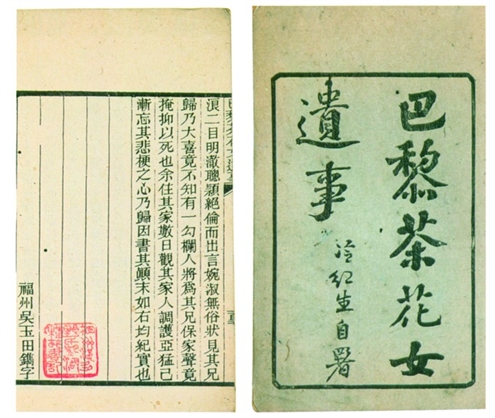 巴黎茶花女
遺事
冷紅生自署
浪二目明澈聰穎絕倫而出言婉淑無俗狀見其兄
歸乃大喜竟不知有一勾欄人將為其兄保家聲竟
掩抑以死也余住其家數日觀其家人調護亞猛已
漸忘其悲梗之心乃歸因書其顛末如右均紀實也
福州吳玉田鐫字